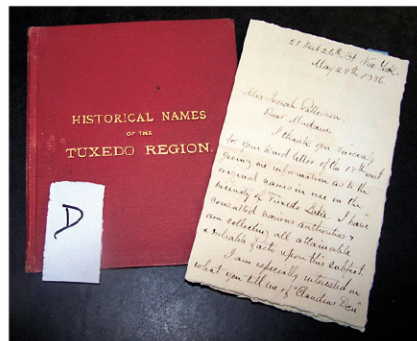 HISTORICAL NAMES
OF THE
TUXEDO REGION.
D
21 West 26th St. New York.
May 28th, 1886.
Mrs Josiah Patterson,
Dear Madame,
I thank you sincerely
for your kind letter of the 18th inst
giving me information as to the
original names in use in the
vicinity of Tuxedo Lake. I have
consulted various authorities &
am collecting all attainable
& valuable facts upon this subject.
I am especially interested in
what you tell me of "Claudius Den"